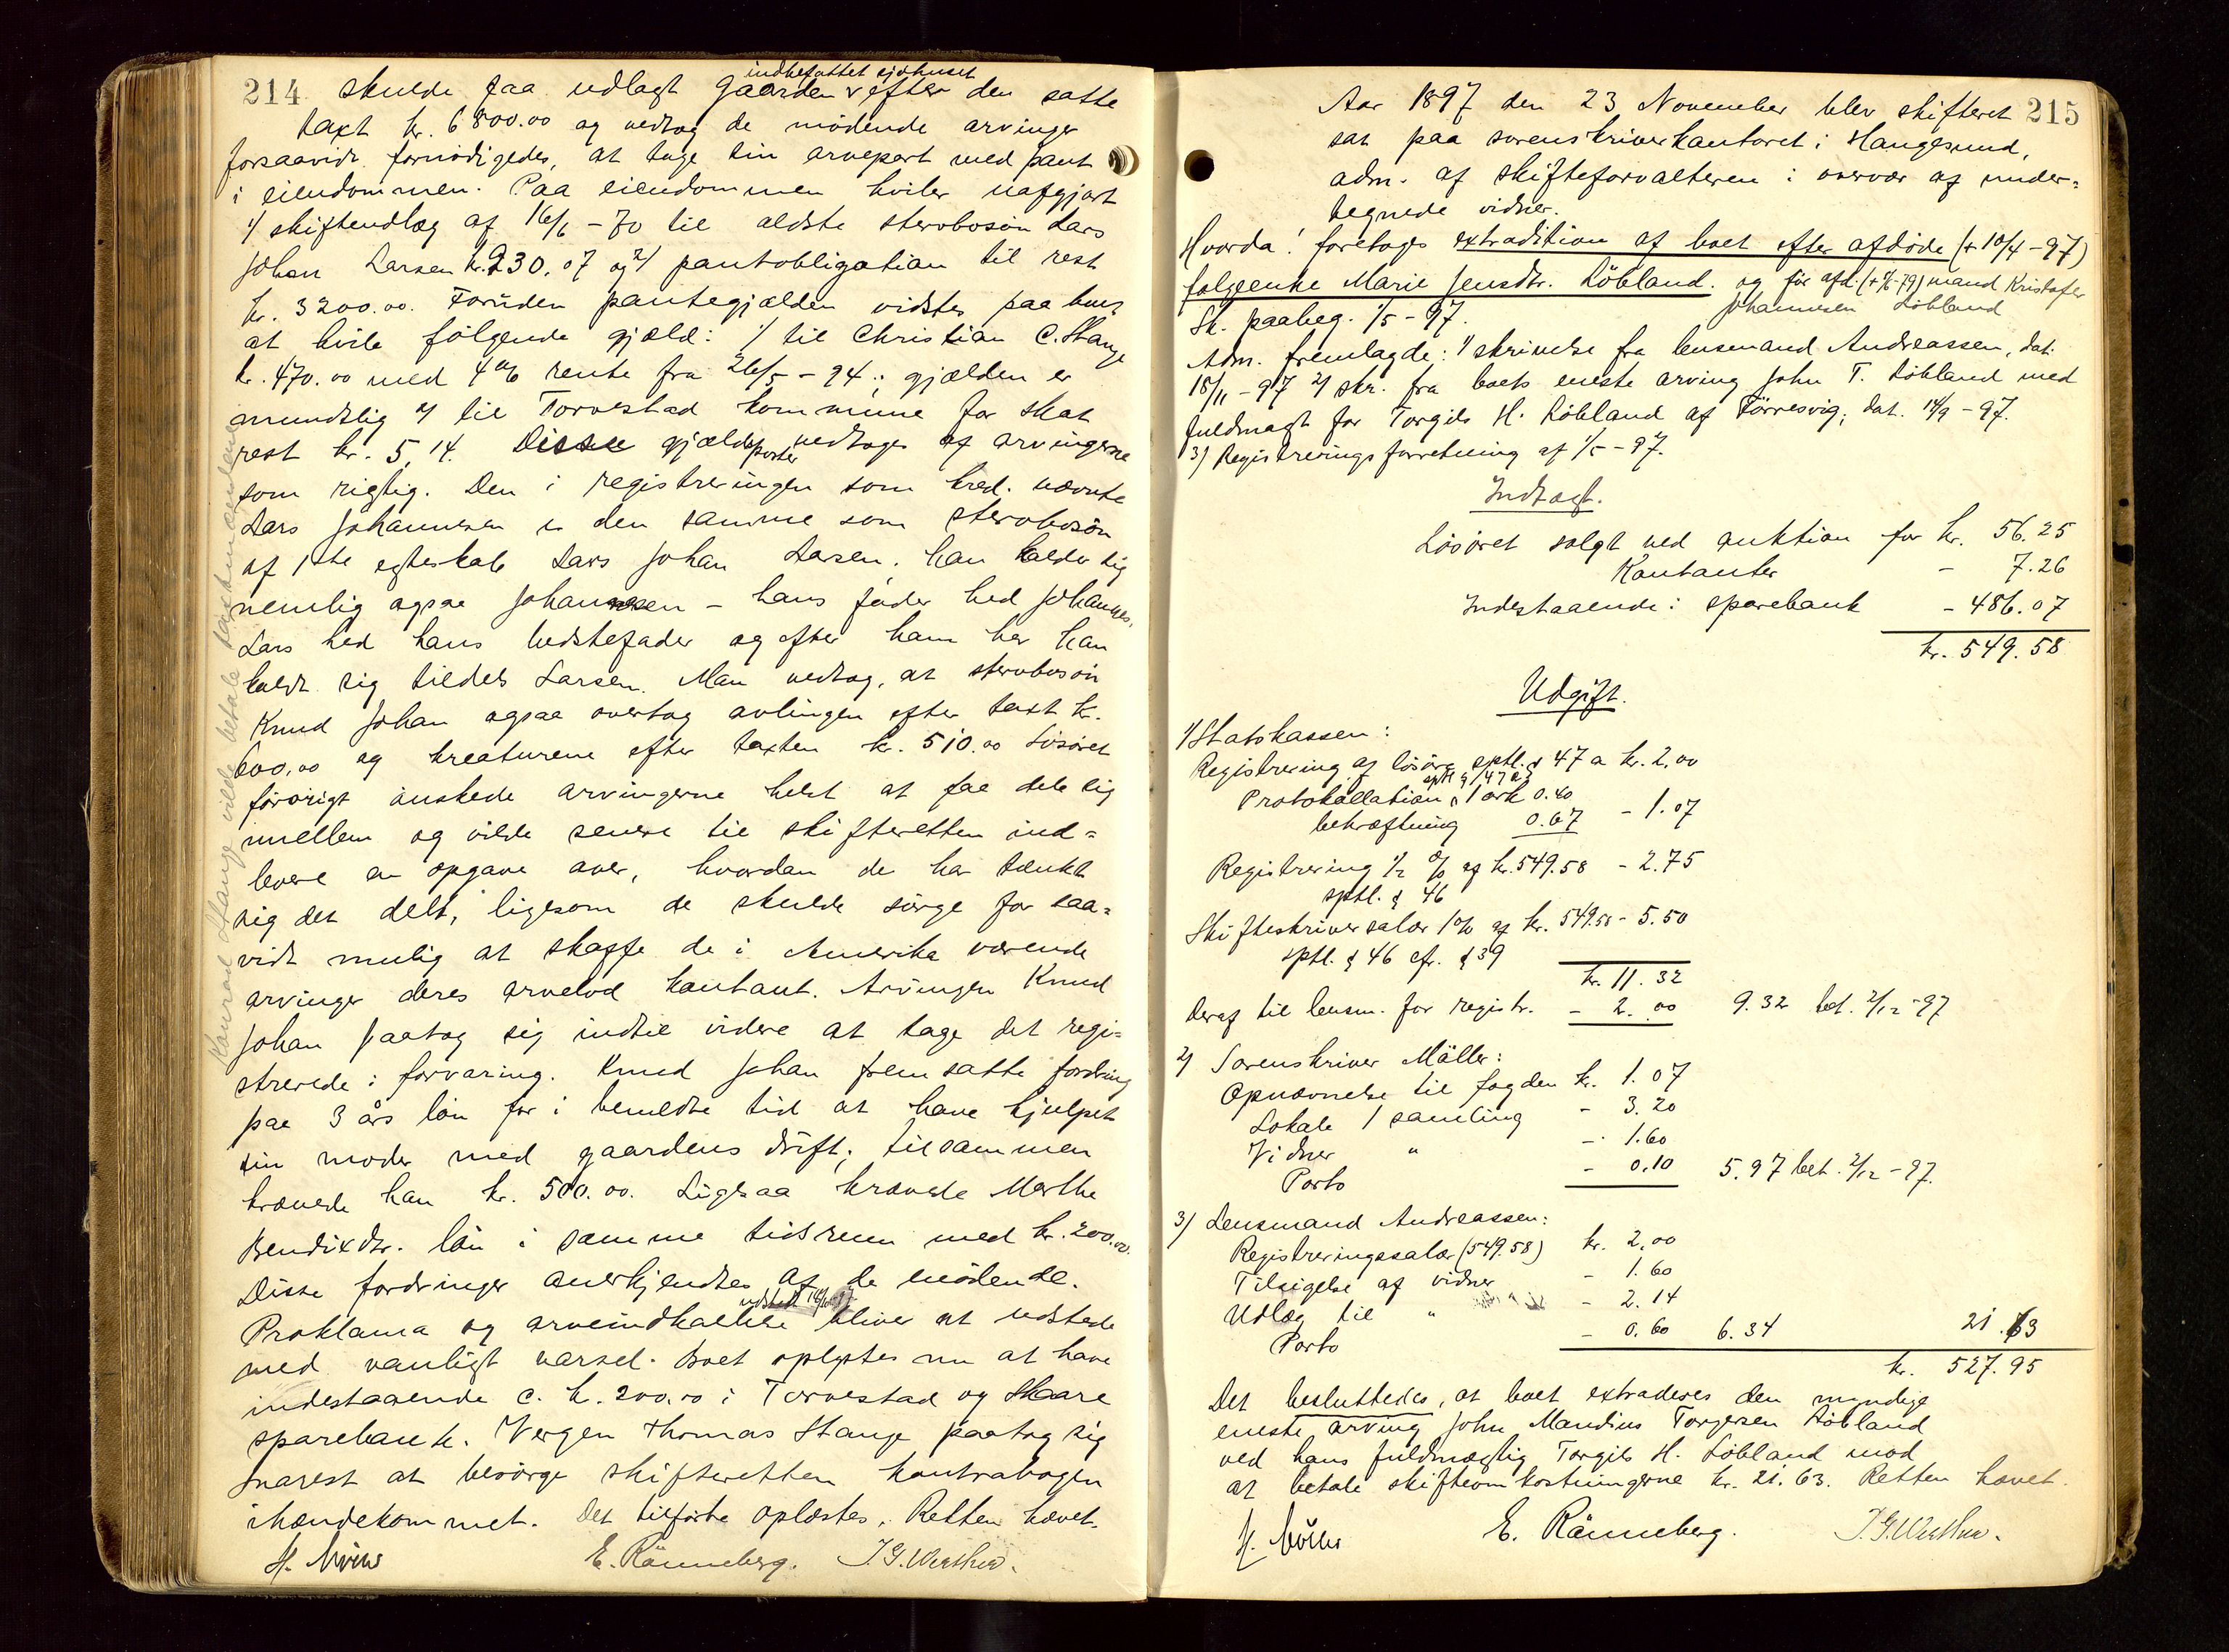 214 skulde faa udlagt gaarden indbefattet sjøhuset efter den satte
taxt kr. 6800.00 og vedtog de mødende arvinger
forsaavidt fornødigedes, at tage sin arvepart med pant
i eiendommen. Paa eiendommen hviler uafgjort
1/ skifteudlæg af 16/6 - 70 til ældste stervbosøn Lars
Johan Larsen kr. 230.07 og 2/ pantobligation til rest
kr. 3200.00. Foruden pantegjælden vidstes paa boet
at hvile følgende gjæld: 1/ til Christian C. Stange
kr. 470.00 med 4% rente fra 26/5 - 94; gjælden er
mundtlig 2/ til Torvestad kommune for skat
rest kr. 5,14. Disse gjældsposter vedtoges af arvingerne
som rigtig. Den i registreringen som kred. nævnte
Lars Johannesen er den samme som stervbosøn
af 1ste egteskab Lars Johan Larsen. han kalder sig
nemlig ogsaa Johannesen - hans fader hed Johannes.
Lars hed hans bedstefader og efter ham har han
kaldt sig tildels Larsen. Man vedtog, at stervbosøn
Knud Johan ogsaa overtog avlingen efter taxt kr.
600.00 og kreaturene efter taxten kr. 510.00 Løsøret
forøvrigt ønskede arvingerne helst at faa dele sig
imellem og vilde senere til skifteretten ind=
levere en opgave over, hvordan de har tænkt
sig det delt, ligesom de skulde sørge for saa=
vidt mulig at skaffe de i Amerika værende
arvinger deres arvelod kontant. Arvingen Knud
Johan paatog sig indtil videre at tage det regi=
strerede i forvaring. Knud Johan fremsatte fordring
paa 3 års løn for i bemeldte tid at have hjulpet
sin moder med gaardens drift; tilsammen
krævede han kr. 500.00. Ligesaa krævede Marthe
Bendixdtr. løn i samme tidsrum med kr. 200.00.
Disse fordringer anerkjendtes af de mødende.
Proklama og arveindkaldelse bliver at udstede
med vanligt varsel. Boet oplystes nu at have
indestaaende c. kr. 200.00 i Torvestad og Skaare
sparebank. Vergen Thomas Stange paatog sig
snarest at besørge skifteretten kontrabogen
ihændekommet. Det tilførte oplæstes. Retten hævet.
H. Møller E. Rønneberg. I. G. Wershew.
Konrad Stange vilde betale
215
Aar 1897 den 23 November blev skifteret
sat paa sorenskriverkontoret i Haugesund,
adm. af skifteforvalteren i overvær af under=
tegnede vidner.
Hvorda! foretoges extradition af boet efter afdøde (+ 10/4 - 97)
følgeenke Marie Jensdtr. Løbland. og før afd. (+ 4/6 - 79) mand Kristofer
Johannesen Løbland
Sk. paabeg. 1/5 - 97.
Adm. fremlagde: 1/ skrivelse fra lensmand Andreassen, dat.
18/11 - 97 2/ skr. fra boets eneste arving John T. Løbland med
fuldmagt for Torgils H. Løbland af Førresvig, dat. 14/9 - 97.
3/ Registreringsforretning af 1/5 - 97.
Indtægt.
Løsøret solgt ved auktion for kr. 56.25
Kontanter - 7.26
Indestaaende i sparebank - 486.07
kr. 549.58
Udgift.
1/ Statskassen:
Registrering af løsøre sptl. § 47 a kr. 2,00
sptl § 47 a
Protokollation 1 ark 0.40
bekræftning 0.67 - 1.07
Registrering 1/2 % af kr. 549.58 - 2.75
sptl. § 46
Skifteskriversalær 1% af kr. 549.58 - 5.50
sptl. § 46 cfr. § 39
kr. 11.32
Deraf til lensm. for registr. - 2.00 9.32 bet. 2/12 - 97
2/ Sorenskriver Møller:
Opnævnelse til fogden kr. 1.07
Lokale 1 samling - 3.20
Vidner " - 1.60
Porto - 0.10 5.97 bet. 2/12 - 97.
3/ Lensmand Andreassen:
Registreringssalær (549.58) kr. 2,00
Tilsigelse af vidner - 1.60
Udlæg til " - 2.14
Porto - 0.60 6.34 21.63
kr. 527.95
Det besluttedes, at boet extraderes den myndige
eneste arving John Mandius Torgersen Løbland
ved hans fuldmægtig Torgils H. Løbland mod
at betale skifteomkostningerne kr. 21.63. Retten hævet.
H. Møller E. Rønneberg. I. G. Wershew.